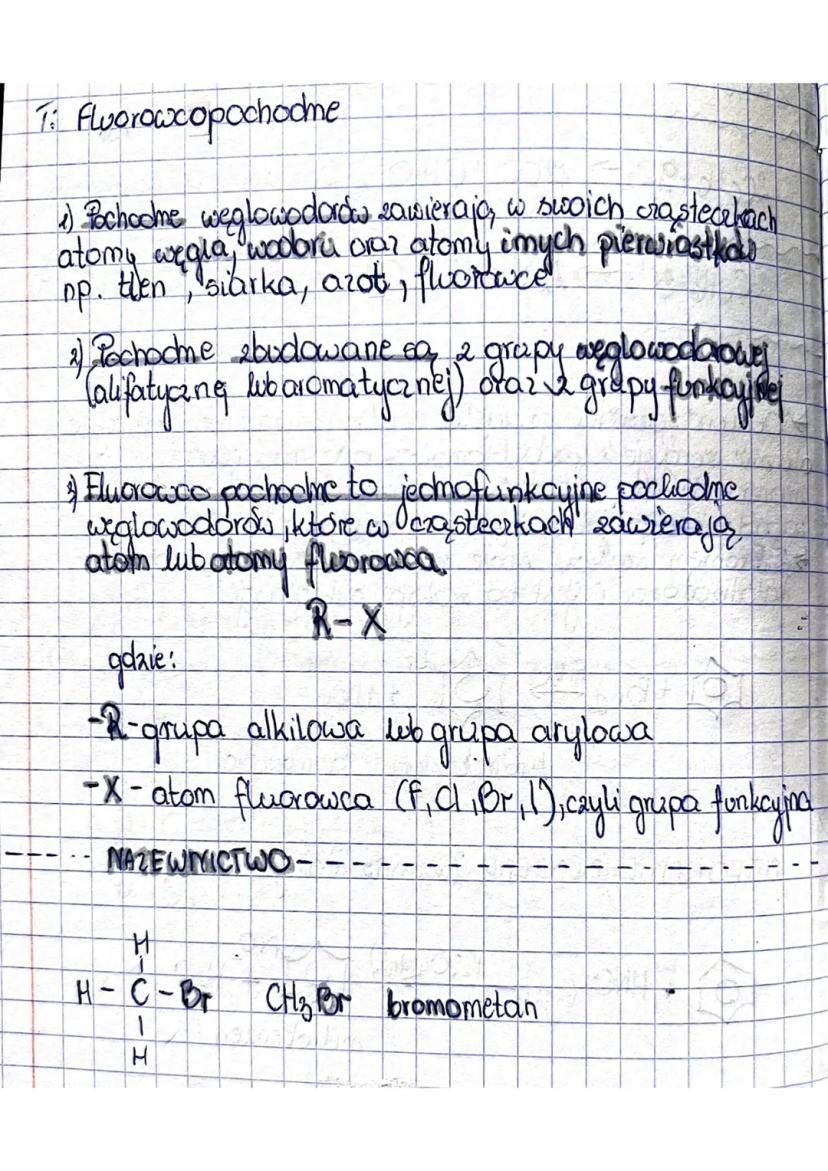 T: Fluorowcopochodne
1) Pochodne węglowodorów zawierają w swoich cząsteczkach
atomy węgla, wodoru oraz atomy innych pierwiastków
np. tlen, siarka, azot, fluorowce
2) Pochodne zbudowane są z grupy węglowodorowej
(alifatycznej lub aromatycznej) oraz z grupy funkcyjnej
3) Fluorowco pochodne to jednofunkcyjne pochodne
węglowodorów, które w cząsteczkach zawierają
atom lub atomy fluorowca.
R-X
gdzie:
-R- grupa alkilowa lub grupa arylowa
-X- atom fluorowca (F, Cl, Br, I), czyli grupa funkcyjna
---- NAZEWNICTWO ----
H
H - C - Br CH3Br bromometan
H